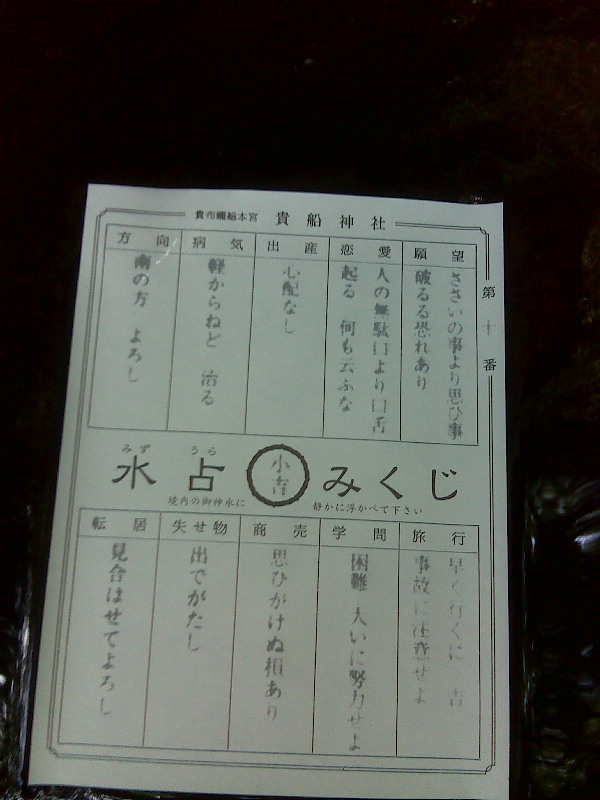 貴布禰総本宮 貴船神社
第十番
願望
ささいの事より思ひ事
破るる恐れあり
恋愛
人の無駄口より口舌
起る 何も云ふな
出産
心配なし
病気
軽からねど 治る
方向
南の方 よろし
みず うら
水占 小吉 みくじ
境内の御神水に
静かに浮かべて下さい
旅行
早く行くに 吉
事故に注意せよ
学問
困難 大いに努力せよ
商売
思ひがけぬ損あり
失せ物
出でがたし
転居
見合はせてよろし